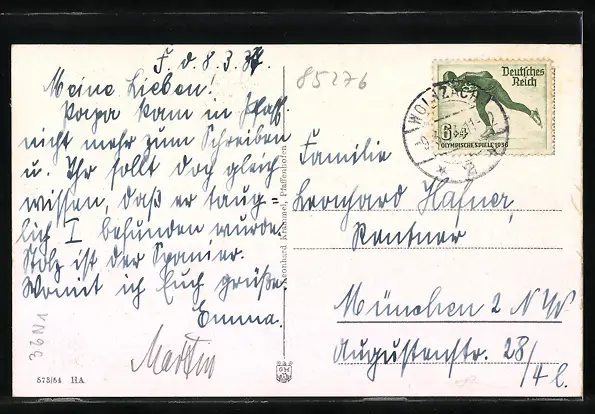 F. d. 8. 3. 37.
Meine Lieben!
Papa kam in Pfaff.
nicht mehr zum Schreiben
u. Ihr sollt doch gleich
wissen, daß er taug-
lich I befunden wurde.
Stolz ist der Spanier.
Womit ich Euch grüße
Emma.
Martin
36N1
573/54 HA
Leonhard Krammel, Pfaffenhofen
85276
Deutsches
Reich
6+4
OLYMPISCHE SPIELE 1936
WOLNZACH
Familie
Leonhard Hafner,
Rentner
München 2 NW
Augustenstr. 28/4 l.